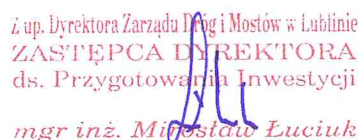 z up. Dyrektora Zarządu Dróg i Mostów w Lublinie
ZASTĘPCA DYREKTORA
ds. Przygotowania Inwestycji
mgr inż. Mirosław Łuciuk